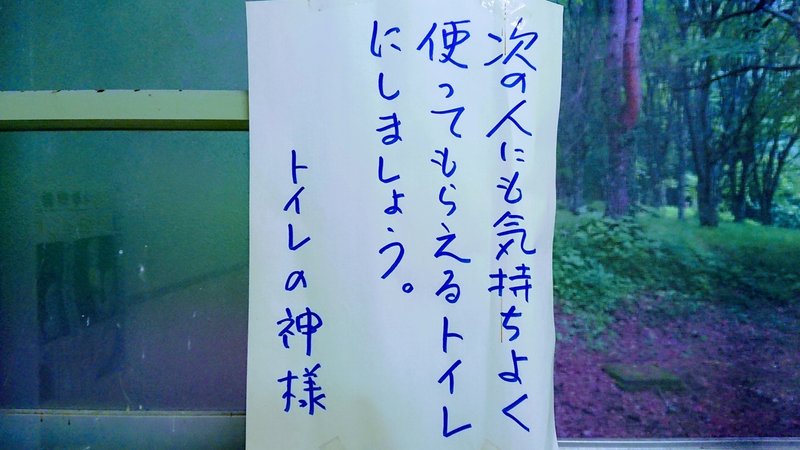 次の人にも気持ちよく
使ってもらえるトイレ
にしましょう。
トイレの神様